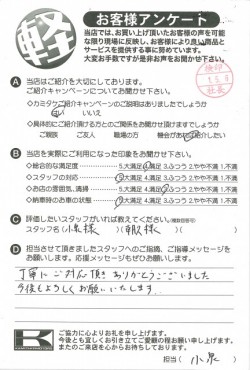 軽
お客様アンケート
当店では、お買い上げ頂いたお客様の声を可能
な限り現場に反映し、お客様により良い商品と
サービスを提供する事に努めています。
大変お手数ですが是非お声をお聞かせ下さい。
検印
社長
A 当店はご紹介を大切にしております。
ご紹介キャンペーンについてお聞かせ下さい?
◇カミタケご紹介キャンペーンのご説明はありましたでしょうか
はい いいえ
◇具体的にご紹介頂ける方とのご関係をお聞かせ頂けますでしょうか
ご親族 ご友人 職場の方 機会があればご紹介したい
B 当店を実際にご利用になった印象をお聞かせ下さい。
◇総合的な満足度 5大満足 4満足 3ふつう 2やや不満 1不満
◇スタッフの対応 5大満足 4満足 3ふつう 2やや不満 1不満
◇お店の雰囲気、清掃 5大満足 4満足 3ふつう 2やや不満 1不満
◇納車時のお車の状態 5大満足 4満足 3ふつう 2やや不満 1不満
C 評価したいスタッフがいれば教えてください。(複数回答可)
スタッフ名(小泉様)( 様)
D 担当させて頂きましたスタッフへのご指摘、ご指導メッセージをお
願いします。応援メッセージもぜひお願いします。
丁寧にご対応頂きありがとうございました
今後もよろしくお願いいたします。
ご協力に心よりお礼を申し上げます。
今後とも宜しくお引き立てご愛顧の程お願い申し上げます。
またのご来店を心からお待ちしております。
担当( 小泉 )